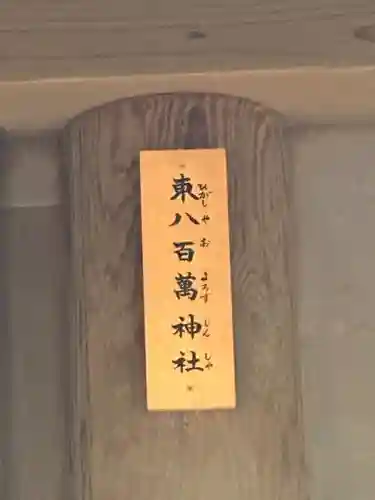 東八百萬神社
ひがしやおよろずじんじゃ